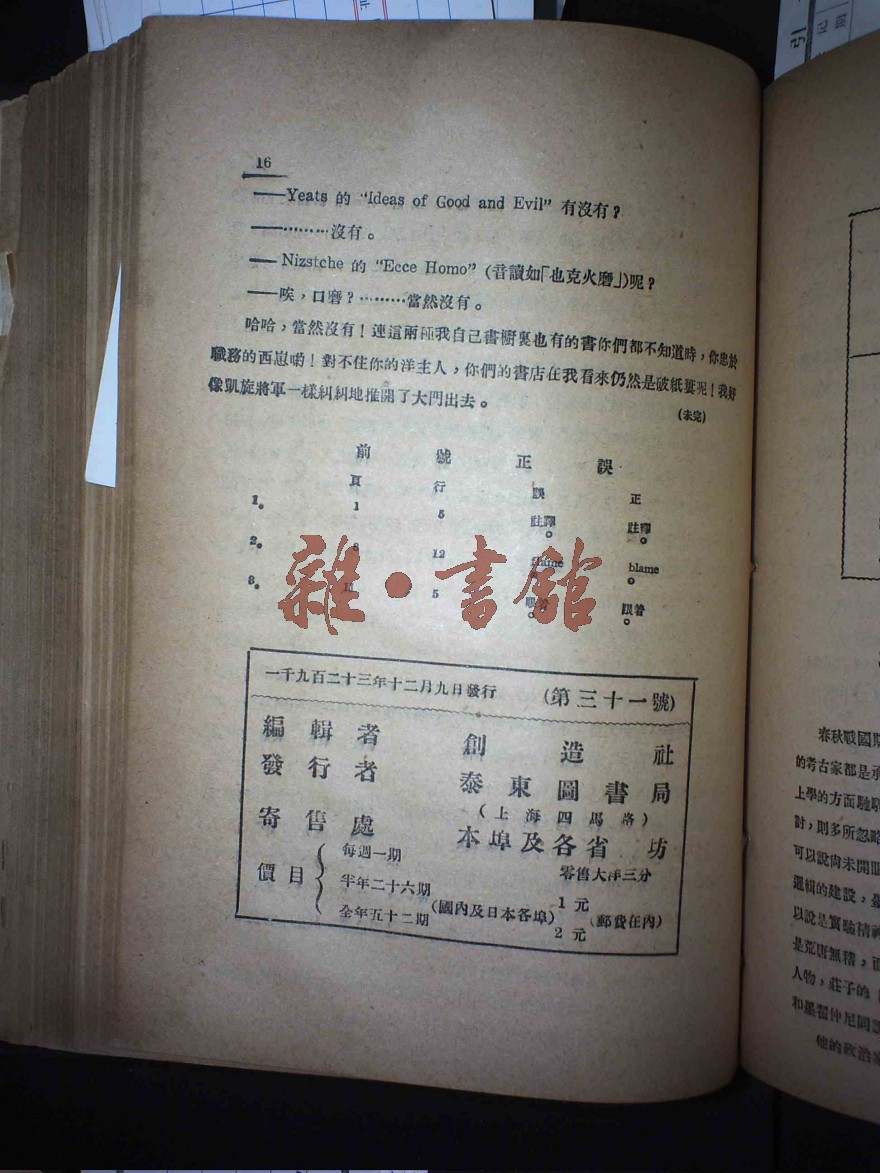 16
——Yeats 的 “Ideas of Good and Evil” 有沒有？
——………沒有。
—— Nizstche 的 “Ecce Homo” (音讀如「也克火磨」)呢？
——唉，口磨？………當然沒有。
哈哈，當然沒有！連這兩種我自己書櫥裏也有的書你們都不知道時，你忠於
職務的西崽喲！對不住你的洋主人，你們的書店在我看來仍然是破紙簍呢！我好
像凱旋將軍一樣糾糾地推開了大門出去。
(未完)
前 號 正 誤
頁 行 誤 正
1。 1 5 註釋。 註釋。
2。 8 12 blame。
3。 11 5 眼着。 跟着。
雜·書館
一千九百二十三年十二月九日發行 (第三十一號)
編輯者 創造社
發行者 泰東圖書局
(上海四馬路)
寄售處 本埠及各省 坊
價目
每週一期 零售大洋三分
半年二十六期 1 元
(國內及日本各埠) (郵費在內)
全年五十二期 2 元
春秋戰國
的考古家都是承
上學的方面馳
討，則多所忽略
可以說尚未開
邏輯的建設，
以說是實驗精神
是荒唐無稽，
人物，莊子的
和墨翟仲尼同
他的政治